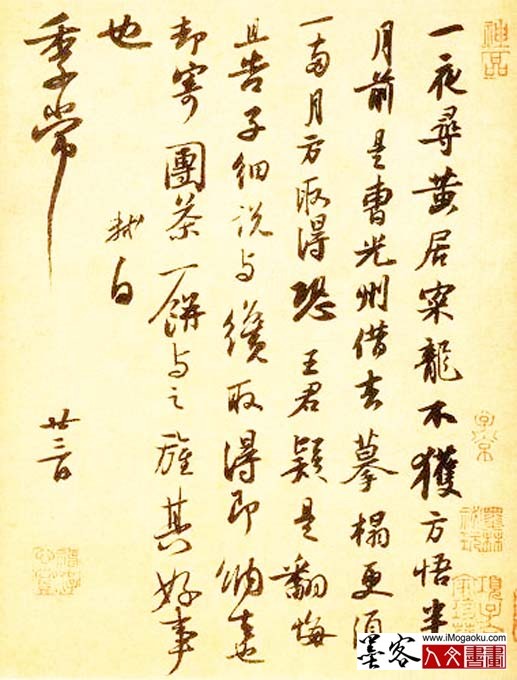 一夜尋黃居寀龍不獲方悟半
月前是曹光州借去摹搨更須
一兩月方取得恐王君疑是翻悔
且告子細說与纔取得即納去也
却寄團茶一餅与之旌其好事
也
軾白
季常
廿三日
神品
子京
墨客
www.iMogaoku.com
人文書畫